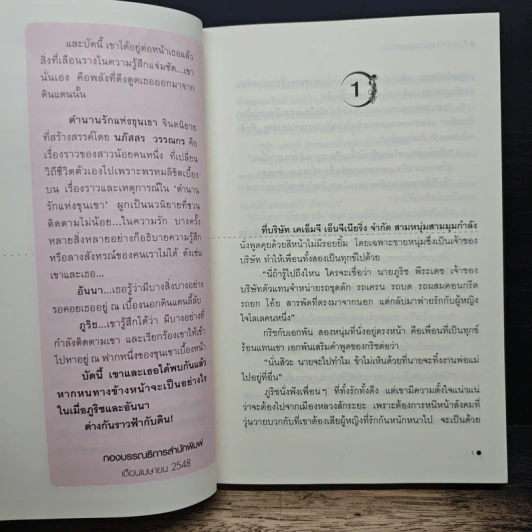 และบัดนี้ เขาได้อยู่ต่อหน้าเธอแล้ว
สิ่งที่เลือนรางในความรู้สึกแจ่มชัด...เขา
นั่นเอง คือพลังที่ดึงดูดเธอออกมาจาก
ดินแดนนั้น
ตำนานรักแห่งขุนเขา จินตนิยาย
ที่สร้างสรรค์โดย นภัสสร วรรณกร คือ
เรื่องราวของสาวน้อยคนหนึ่ง ที่เปลี่ยน
วิถีชีวิตตัวเองไปเพราะพรหมลิขิตเบื้อง
บน เรื่องราวและเหตุการณ์ใน 'ตำนาน
รักแห่งขุนเขา' ผูกเป็นนวนิยายที่ชวน
ติดตามไม่น้อย...ในความรัก บางครั้ง
หลายสิ่งหลายอย่างก็อธิบายความรู้สึก
หรือลางสังหรณ์ของคนเราไม่ได้ ดังเช่น
เขาและเธอ...
อันนา...เธอรู้ว่ามีบางสิ่งบางอย่าง
รอคอยเธออยู่ ณ เบื้องนอกดินแดนลี้ลับ
ภูริช...เขารู้สึกได้ว่า มีบางอย่างที่
กำลังติดตามเขา และเรียกร้องเขาให้เข้า
ไปหาอยู่ ณ ฟากหนึ่งของขุนเขาเบื้องหน้า
บัดนี้ เขาและเธอได้พบกันแล้ว
หากหนทางข้างหน้าจะเป็นอย่างไร
ในเมื่อภูริชและอันนา
ต่างกันราวฟ้ากับดิน!
กองบรรณาธิการสำนักพิมพ์
เดือนเมษายน 2548
1
ที่บริษัท เคเอ็มจี เอ็นจิเนียริ่ง จำกัด สามหนุ่มสามมุมกำลัง
นั่งพูดคุยด้วยสีหน้าไม่มีรอยยิ้ม โดยเฉพาะชายหนุ่มซึ่งเป็นเจ้าของ
บริษัท ทำให้เพื่อนทั้งสองเป็นทุกข์ไปด้วย
"นี่ถ้ารู้ไปถึงไหน ใครจะเชื่อว่า นายภูริช พีระเดช เจ้าของ
บริษัทตัวแทนจำหน่ายรถขุดตัก รถเครน รถบด รถผสมคอนกรีต
รถยก โก้ย สารพัดที่ตรงมาจากนอก แต่กลับมาพ่ายรักกับผู้หญิง
ใจโลเลคนหนึ่ง"
กริชกับเอกพัน สองหนุ่มที่นั่งอยู่ตรงหน้า คือเพื่อนที่เป็นทุกข์
ร้อนแทนเขา เอกพันเสริมคำพูดของกริชต่อว่า
"นั่นสิวะ นายจะไปทำไม ข้าไม่เห็นด้วยที่นายจะทิ้งงานพ่อแม่
ไปอยู่ที่อื่น"
ภูริชนั่งฟังเพื่อนๆ ที่ทั้งรักทั้งดึง แต่เขามีความตั้งใจแน่วแน่
ว่าจะต้องไปจากเมืองหลวงสักระยะ เพราะต้องการหนีหน้าสังคมที่
วุ่นวายบวกกับที่เขาต้องเสียผู้หญิงที่รักกันหนักหนาไป จะเป็นด้วย
1